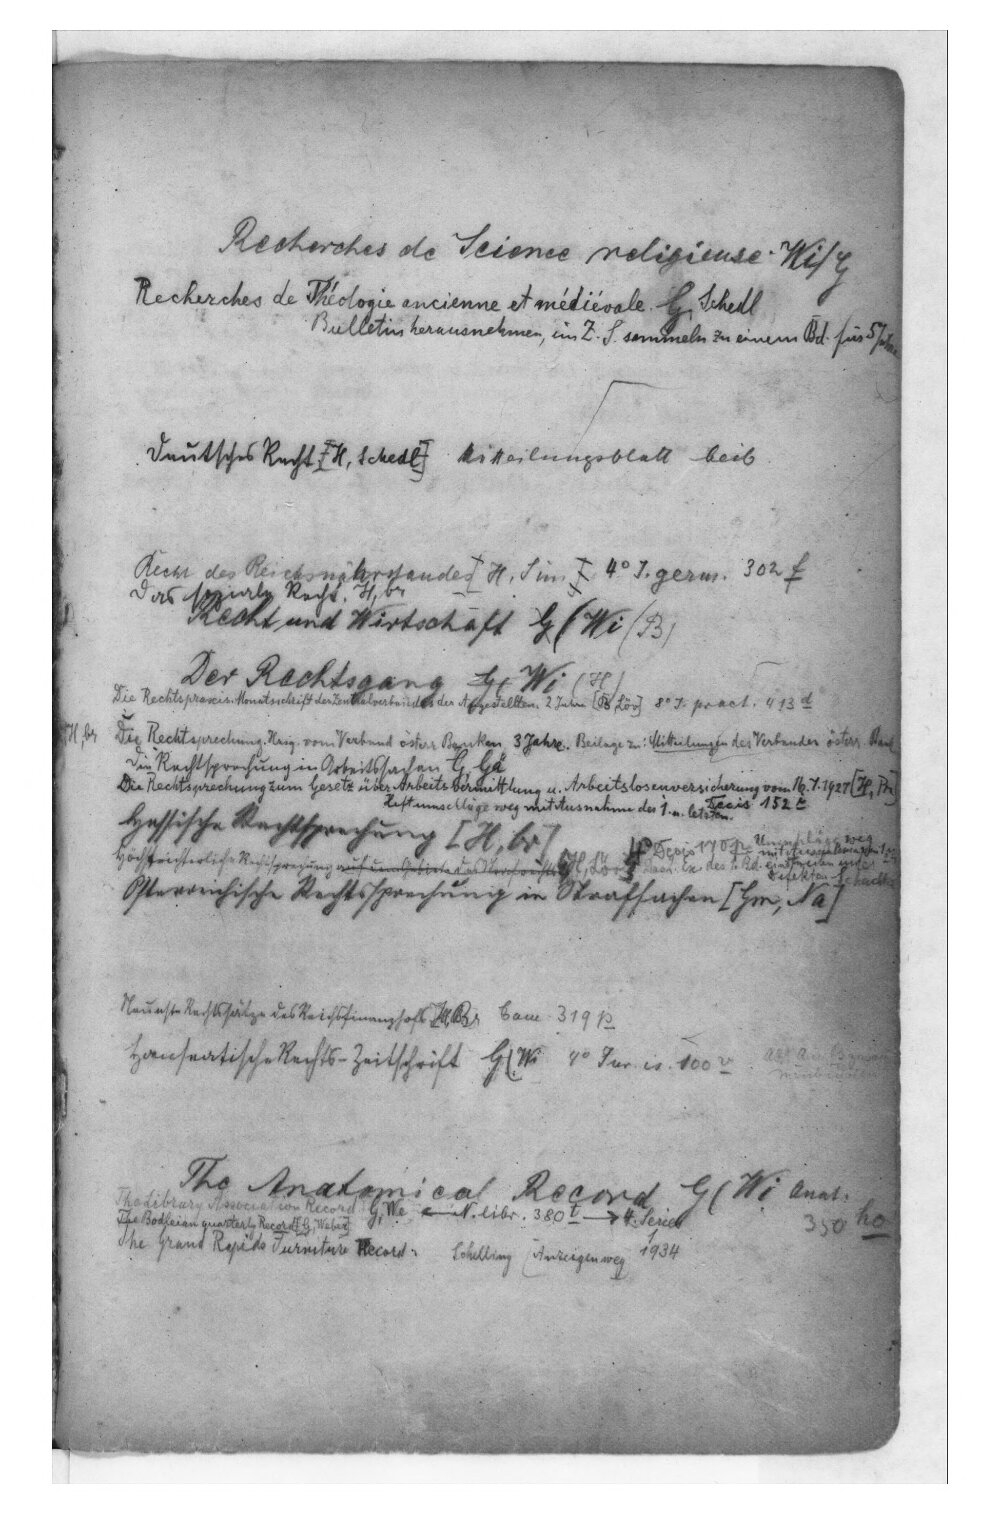 Recherches de Science religieuse. Wi/G
Recherches de Théologie ancienne et médiévale. G, Schedl
Bulletin herausnehmen, in Z. S. sammeln zu einem Bd. für 5 Jahre
Deutsches Recht [H, Schedl] Mitteilungsblatt beib
Recht des Reichsnährstandes [H, Sim] 4° J. germ. 302 f
Das soziale Recht. H, br
Recht und Wirtschaft G (Wi (B)
Der Rechtsgang G, Wi (H)
Die Rechtspraxis. Monatsschrift des Zentralverbandes der Angestellten. 2 Jahre [B, Lör] 8° J. pract. 413 d
H, br Die Rechtsprechung. Hrsg. vom Verband österr. Banken, 3 Jahre. Beilage zu: Mitteilungen des Verbandes österr. Bank
Die Rechtsprechung in Arbeitssachen G, Gä
Die Rechtsprechung zum Gesetz über Arbeitsvermittlung u. Arbeitslosenversicherung vom 16.7.1927 [H, Br]
Heftumschläge weg mit Ausnahme des 1. u. letzten. 152 t
Hessische Rechtsprechung [H, br]
Höchstrichterliche Rechtsprechung auf dem Gebiete des [H, Lör] 4° 170 Umschläge weg
Österreichische Rechtssprechung in Strafsachen [Gm, Na]
Neueste Rechtssätze des Reichsfinanzhofs [H, Br] Cam. 319 p
Hanseatische Rechts-Zeitschrift G (Wi 4° Jur. is. 100 v
The Anatomical Record G (Wi Anat.
350 ho
The Library Association Record G, We ← N. libr. 380 t → 4. Series
The Bodleian quarterly Record [G, Weber]
The Grand Rapids Furniture Record: Schelling (Anzeigen weg 1934